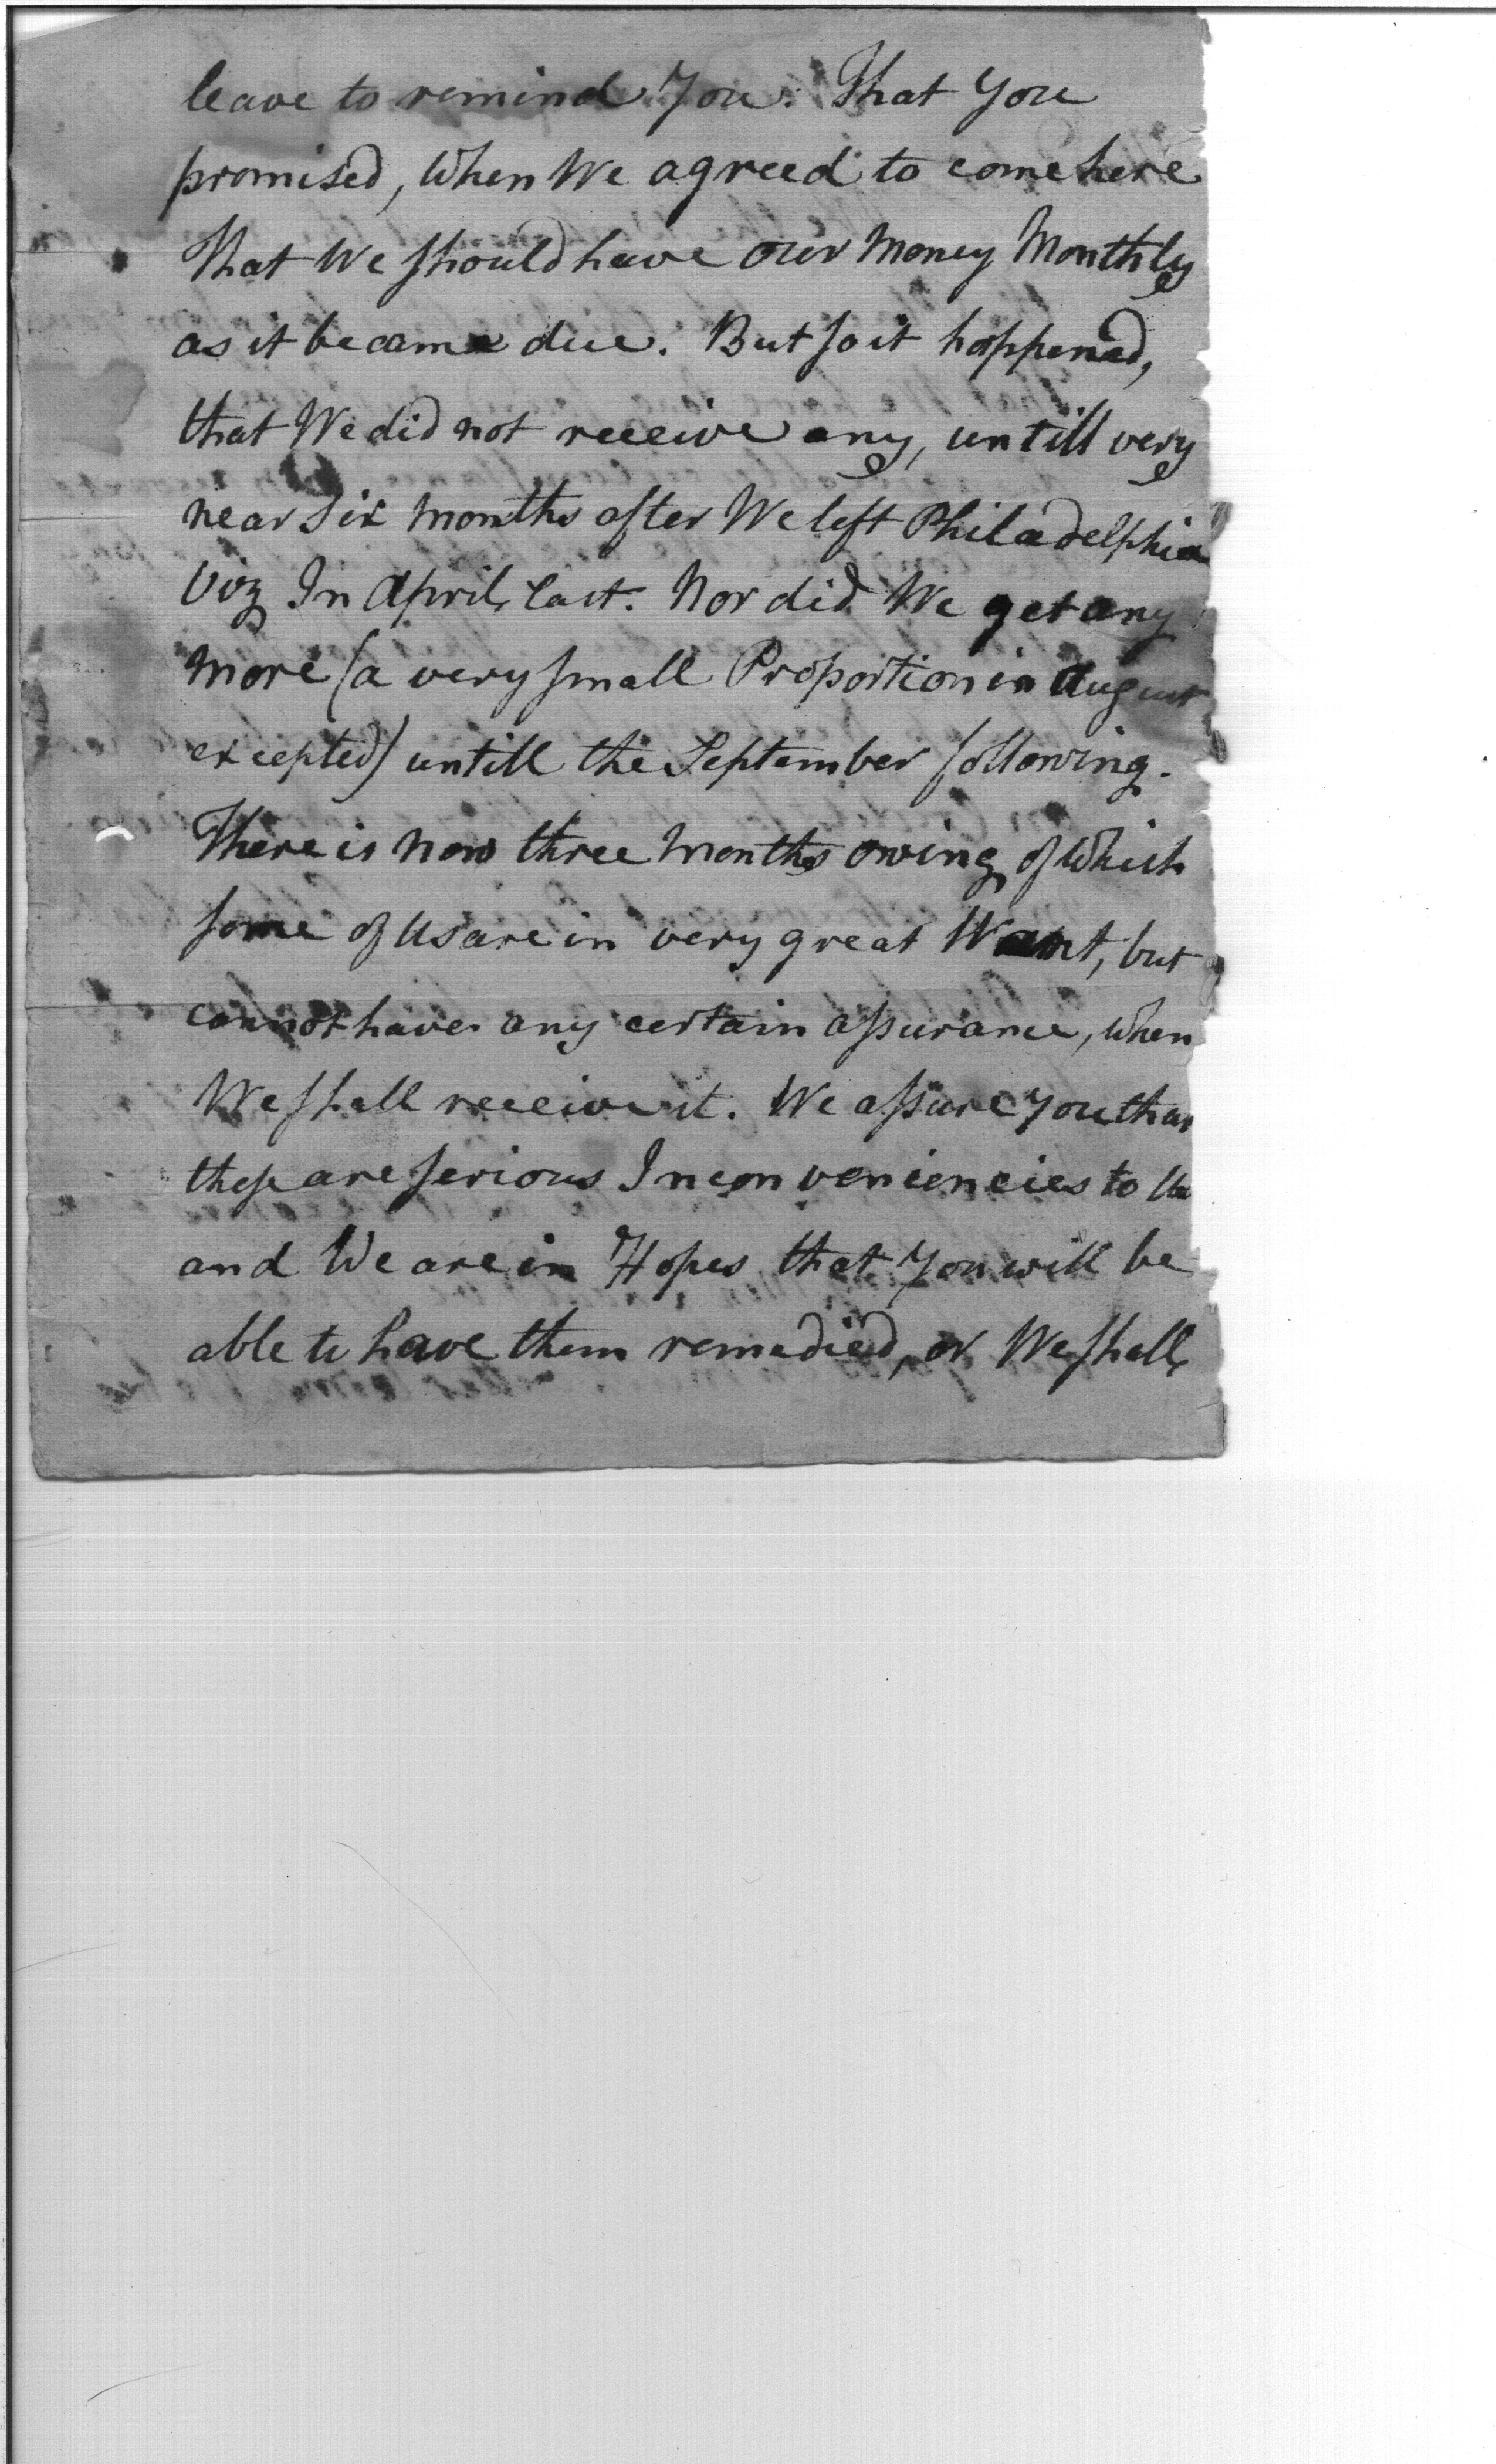 leave to remind You. That You
promised, When We agreed to come here
That We should have our Money Monthly
as it became due. But so it happened,
that We did not receive any, untill very
near Six Months after We left Philadelphia
Viz In April last. Nor did We get any
More (a very small Proportion in August
excepted) untill the September following.
There is now three Months owing of Which
some of Us are in very great Want, but
cannot have any certain assurance, When
We shall receive it. We assure you that
these are serious Inconveniencies to Us
and We are in Hopes that You will be
able to have them remedied, or We shall